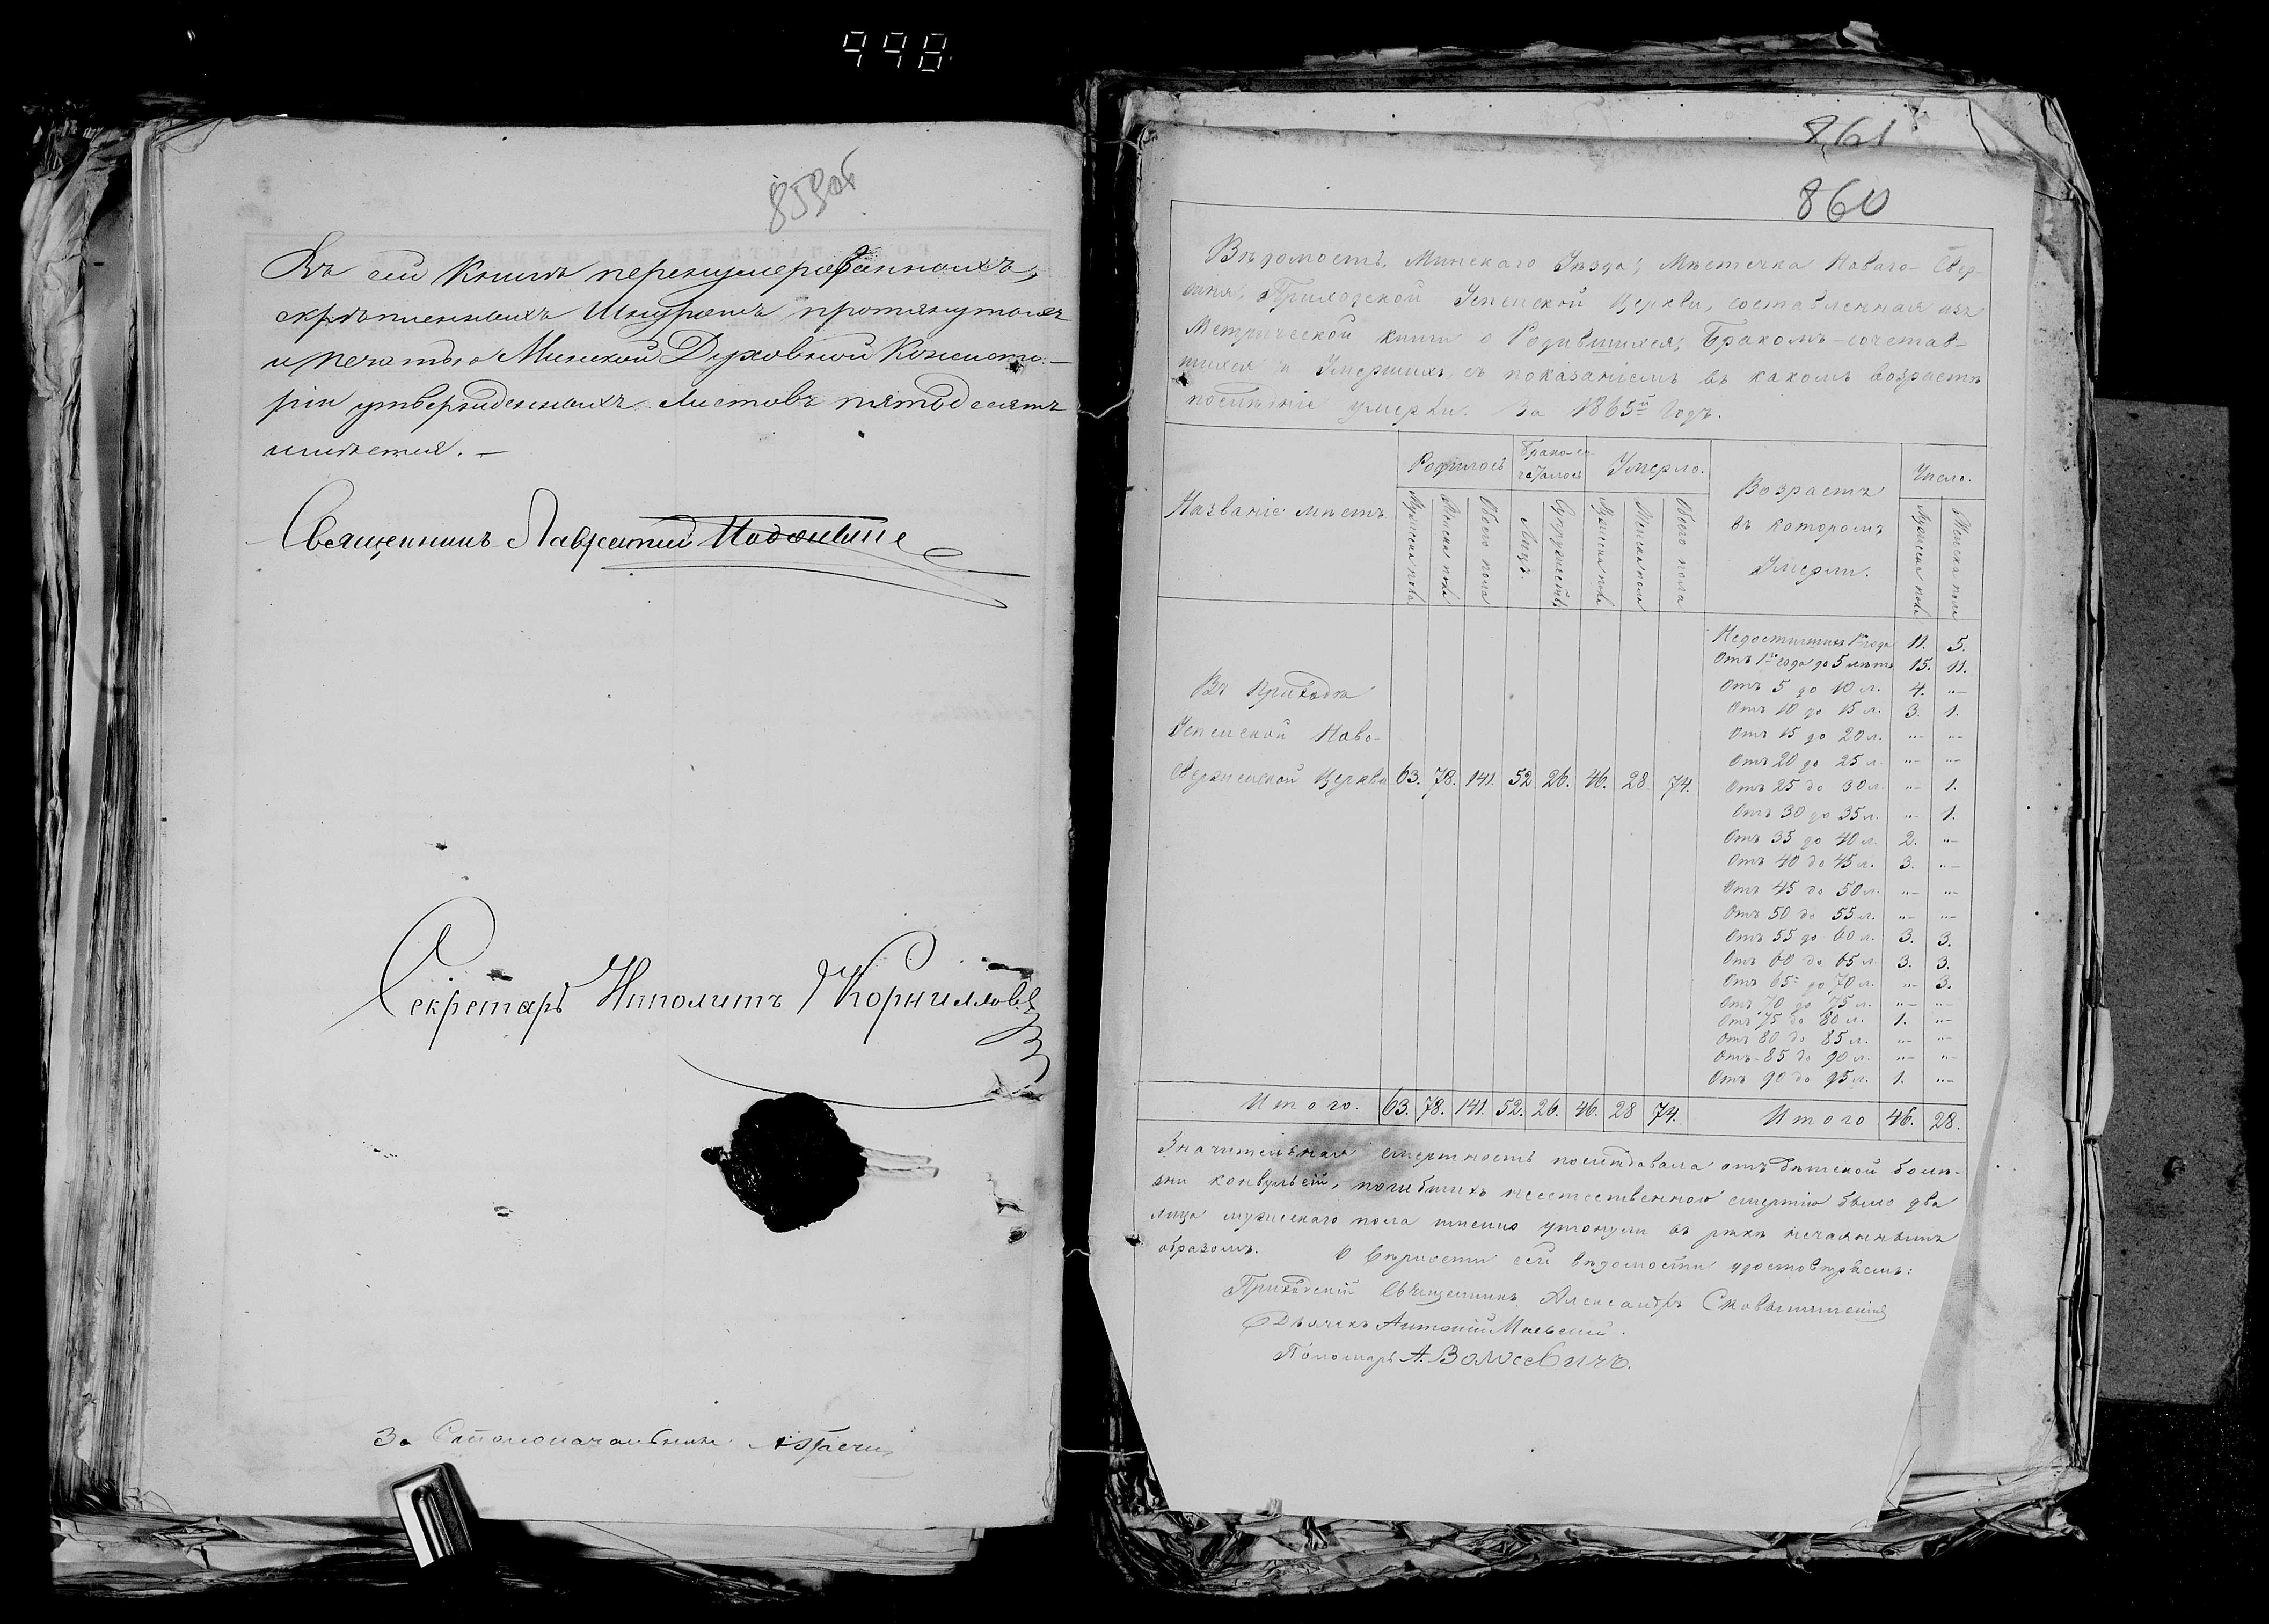 998
859об
Въ сей Книгѣ перенумерованныхъ,
скрѣпленныхъ Шнуромъ протянутыхъ
и печатью Минской Духовной Консисто-
ріи утвержденныхъ листовъ пятьдесятъ
имѣется. —
Священникъ Лаврентій
Секретарь Ипполитъ Корниловъ
За Столоначальника
861
860
Вѣдомость, Минскаго Уѣзда, Мѣстечка Новаго-Свер-
жня, Приходской Успенской Церкви, составленная изъ
Метрической книги о Родившихся, Бракомъ-сочетав-
шихся и Умершихъ, съ показаніемъ въ какомъ возрастѣ
послѣдніе умерли. За 1865й Годъ.
Названіе мѣстъ | Родилось | Брако-со-четалось | Умерло. | Возрастъ въ которомъ Умерли. | Число.
Мужеска пола | Женска пола | Обоего пола | Лицъ. | Супружествъ | Мужеска пола | Женска пола | Обоего пола | Мужеска пола | Женска пола
Недостигшихъ 1го года 11. 5.
Отъ 1го года до 5 лѣтъ 15. 11.
Отъ 5 до 10 л. 4. "—
Отъ 10 до 15 л. 3. 1.
Отъ 15 до 20 л. "— "—
Отъ 20 до 25 л. "— "—
Отъ 25 до 30 л. "— 1.
Отъ 30 до 35 л. "— 1.
Отъ 35 до 40 л. 2. "—
Отъ 40 до 45 л. 3. "—
Отъ 45 до 50 л. "— "—
Отъ 50 до 55 л. "— "—
Отъ 55 до 60 л. 3. 3.
Отъ 60 до 65 л. 3. 3.
Отъ 65 до 70 л. "— 3.
Отъ 70 до 75 л. "— "—
Отъ 75 до 80 л. 1. "—
Отъ 80 до 85 л. "— "—
Отъ 85 до 90 л. "— "—
Отъ 90 до 95 л. 1. "—
Въ Приходѣ
Успенской Ново-
Свержнской Церкви 63. 78. 141. 52 26. 46. 28 74.
Итого. 63. 78. 141. 52. 26. 46. 28 74. Итого 46. 28.
Значительная смертность послѣдовала отъ дѣтской болѣ-
зни конвульсій, погибшихъ неестественною смертію было два
лица мужескаго пола именно утонули въ рѣкѣ нечаяннымъ
образомъ. О вѣрности сей вѣдомости удостовѣряемъ:
Приходскій Священникъ Александръ
Дьячекъ Антоній Маевскій.
Пономарь А.